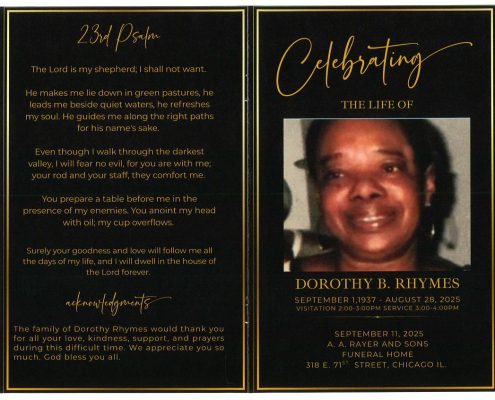 23rd Psalm
The Lord is my shepherd; I shall not want.
He makes me lie down in green pastures, he
leads me beside quiet waters, he refreshes
my soul. He guides me along the right paths
for his name's sake.
Even though I walk through the darkest
valley, I will fear no evil, for you are with me;
your rod and your staff, they comfort me.
You prepare a table before me in the
presence of my enemies. You anoint my head
with oil; my cup overflows.
Surely your goodness and love will follow me all
the days of my life, and I will dwell in the house of
the Lord forever.
acknowledgments
The family of Dorothy Rhymes would thank you
for all your love, kindness, support, and prayers
during this difficult time. We appreciate you so
much. God bless you all.
Celebrating
THE LIFE OF
DOROTHY B. RHYMES
SEPTEMBER 1,1937 - AUGUST 28, 2025
VISITATION 2:00-3:00PM SERVICE 3:00-4:00PM
SEPTEMBER 11, 2025
A. A. RAYER AND SONS
FUNERAL HOME
318 E. 71ST STREET, CHICAGO IL.